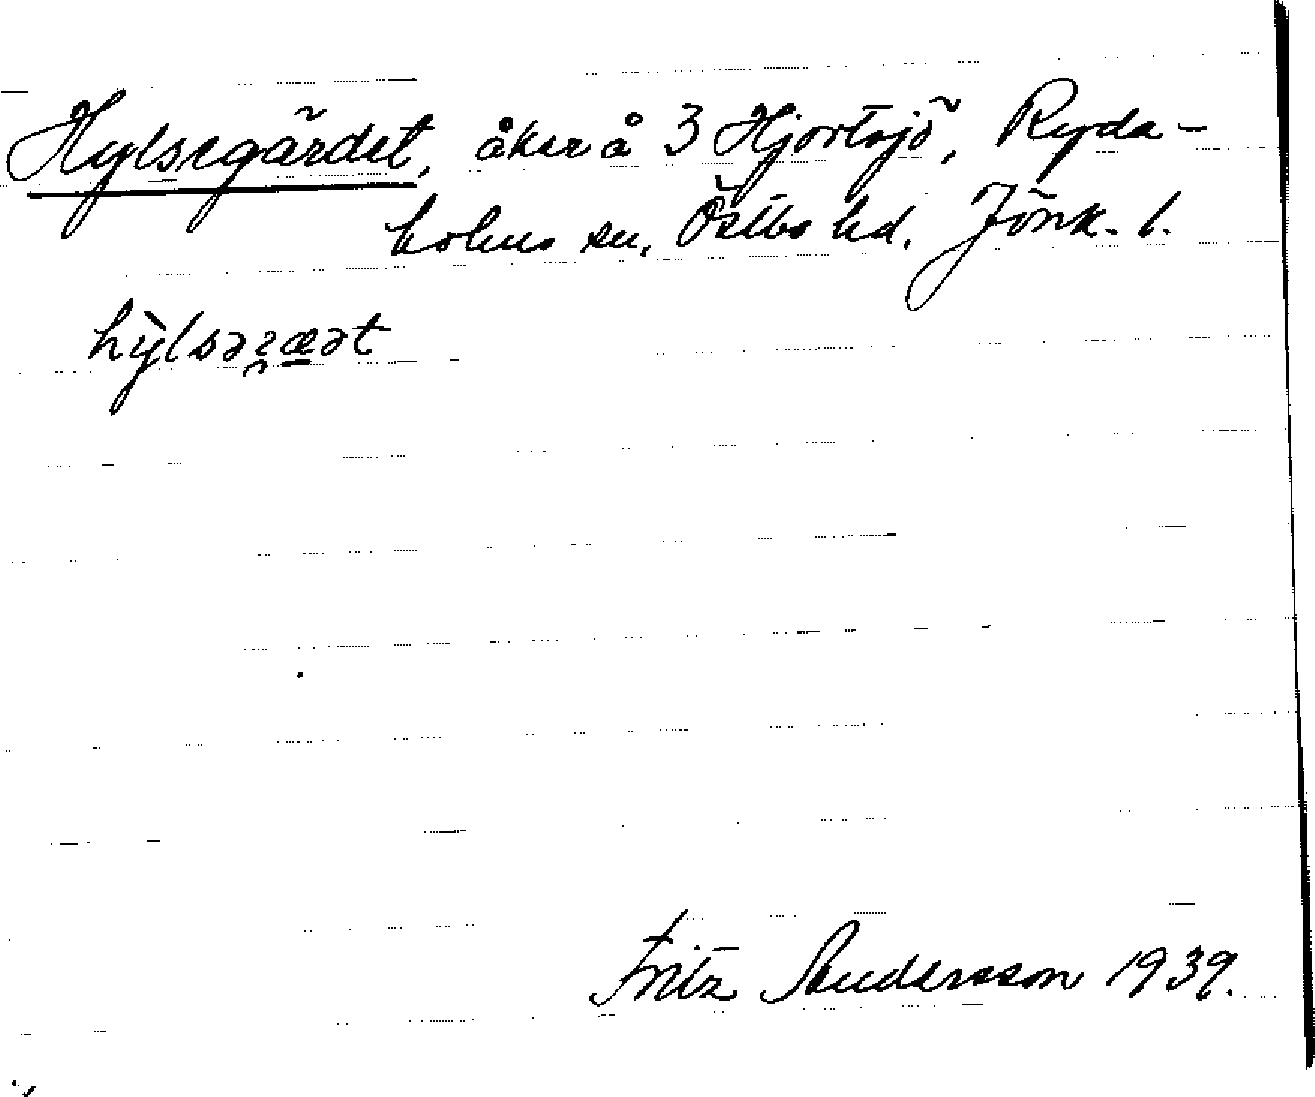 Hylsegärdet, åker å 3 Hjortsjö, Ryda-
holms sn, Östbo hd. Jönk. l.
Fritz Andersson 1939.